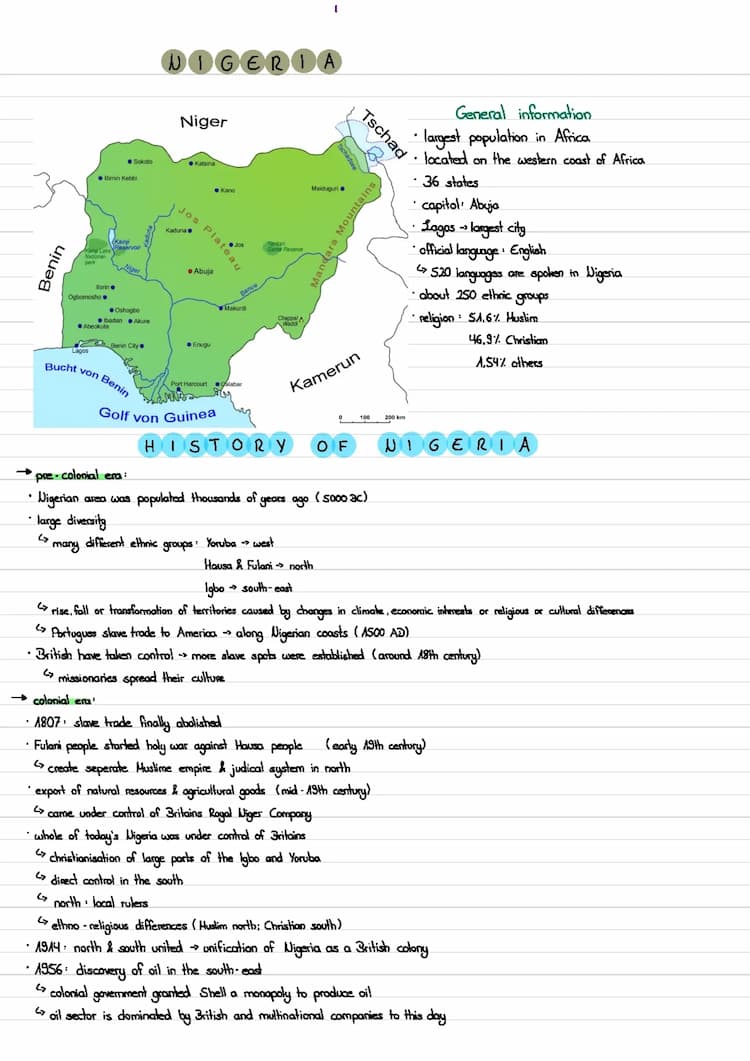 1
NIGERIA
Niger
Tschad
Tschadsee
Benin
Kamerun
Sokoto
Katsina
Birnin Kebbi
Kano
Maiduguri
Jos Plateau
Mandara Mountains
Kaduna
Kaduna
Jos
Kainji Reservoir
Kainji Lake National park
Yankari Game Reserve
Niger
Abuja
Benue
Ilorin
Ogbomosho
Oshogbo
Makurdi
Ibadan
Akure
Chappal Waddi
Abeokuta
Lagos
Benin City
Enugu
Port Harcourt
Calabar
Bucht von Benin
Golf von Guinea
0 100 200 km
General information
· largest population in Africa
· located on the western coast of Africa
· 36 states
· capitol: Abuja
· Lagos → largest city
· official language: English
↳ 520 languages are spoken in Nigeria
· about 250 ethnic groups
· religion: 51,6% Muslim
46,9% Christian
1,54% others
HISTORY OF NIGERIA
→ pre-colonial era:
· Nigerian area was populated thousands of years ago (5000 BC)
· large diversity
↳ many different ethnic groups: Yoruba → west
Hausa & Fulani → north
Igbo → south-east
↳ rise, fall or transformation of territories caused by changes in climate, economic interests or religious or cultural differences
↳ Portugues slave trade to America → along Nigerian coasts (1500 AD)
· British have taken control → more slave spots were established (around 18th century)
↳ missionaries spread their culture
→ colonial era:
· 1807: slave trade finally abolished
· Fulani people started holy war against Hausa people (early 19th century)
↳ create seperate Muslime empire & judical system in north
· export of natural resources & agricultural goods (mid-19th century)
↳ came under control of Britains Royal Niger Company
· whole of today's Nigeria was under control of Britains
↳ christianisation of large parts of the Igbo and Yoruba
↳ direct control in the south
↳ north: local rulers
↳ ethno-religious differences (Muslim north; Christian south)
· 1914: north & south united → unification of Nigeria as a British colony
· 1956: discovery of oil in the south-east
↳ colonial government granted Shell a monopoly to produce oil
↳ oil sector is dominated by British and multinational companies to this day